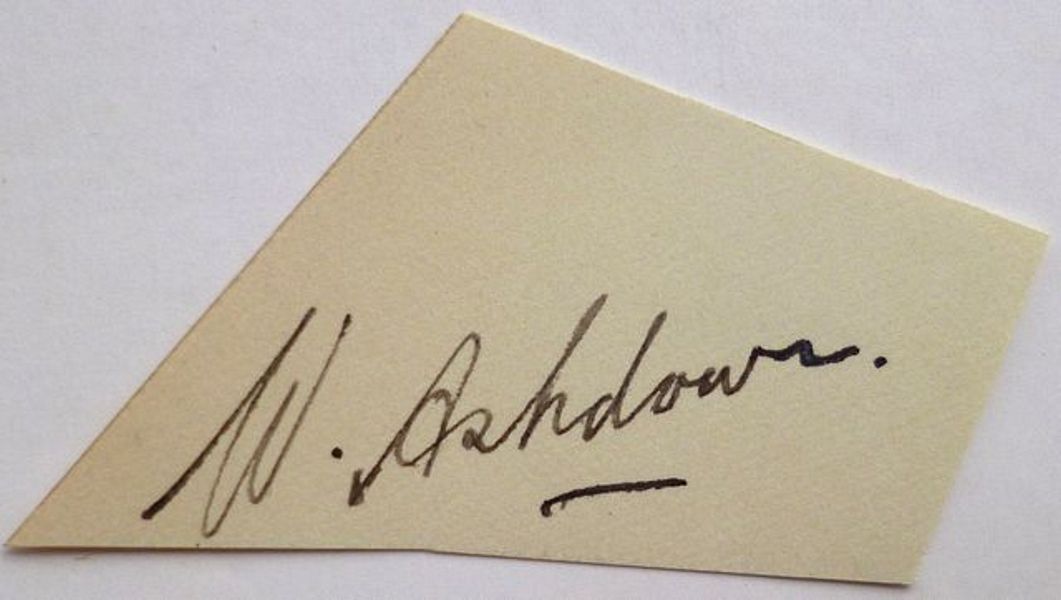 W. Ashdown.